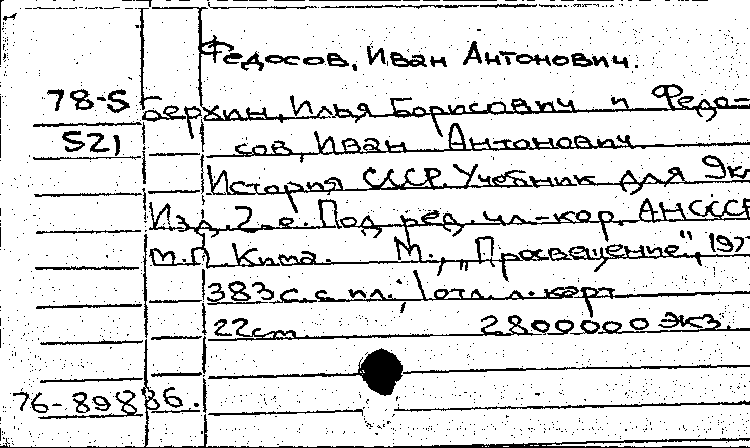 Федосов, Иван Антонович.
78-5 Берхин, Илья Борисович и Федо-
521 сов, Иван Антонович.
История СССР. Учебник для 9кл
Изд. 2-е. Под ред. чл-кор. АНСССР
М.П. Кима. М., „Просвещение", 197
383с. с ил.; 1отл. л. карт
22cm. 2800000экз.
76-89886.